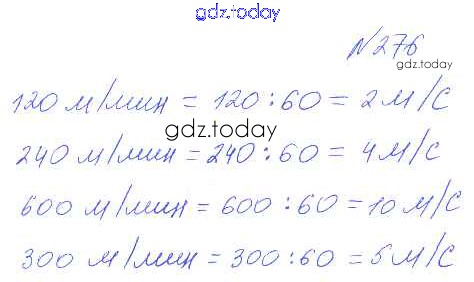 gdz.today
№276
gdz.today
120 м/мин = 120 : 60 = 2 м/с
gdz.today
240 м/мин = 240 : 60 = 4 м/с
600 м/мин = 600 : 60 = 10 м/с
300 м/мин = 300 : 60 = 5 м/с